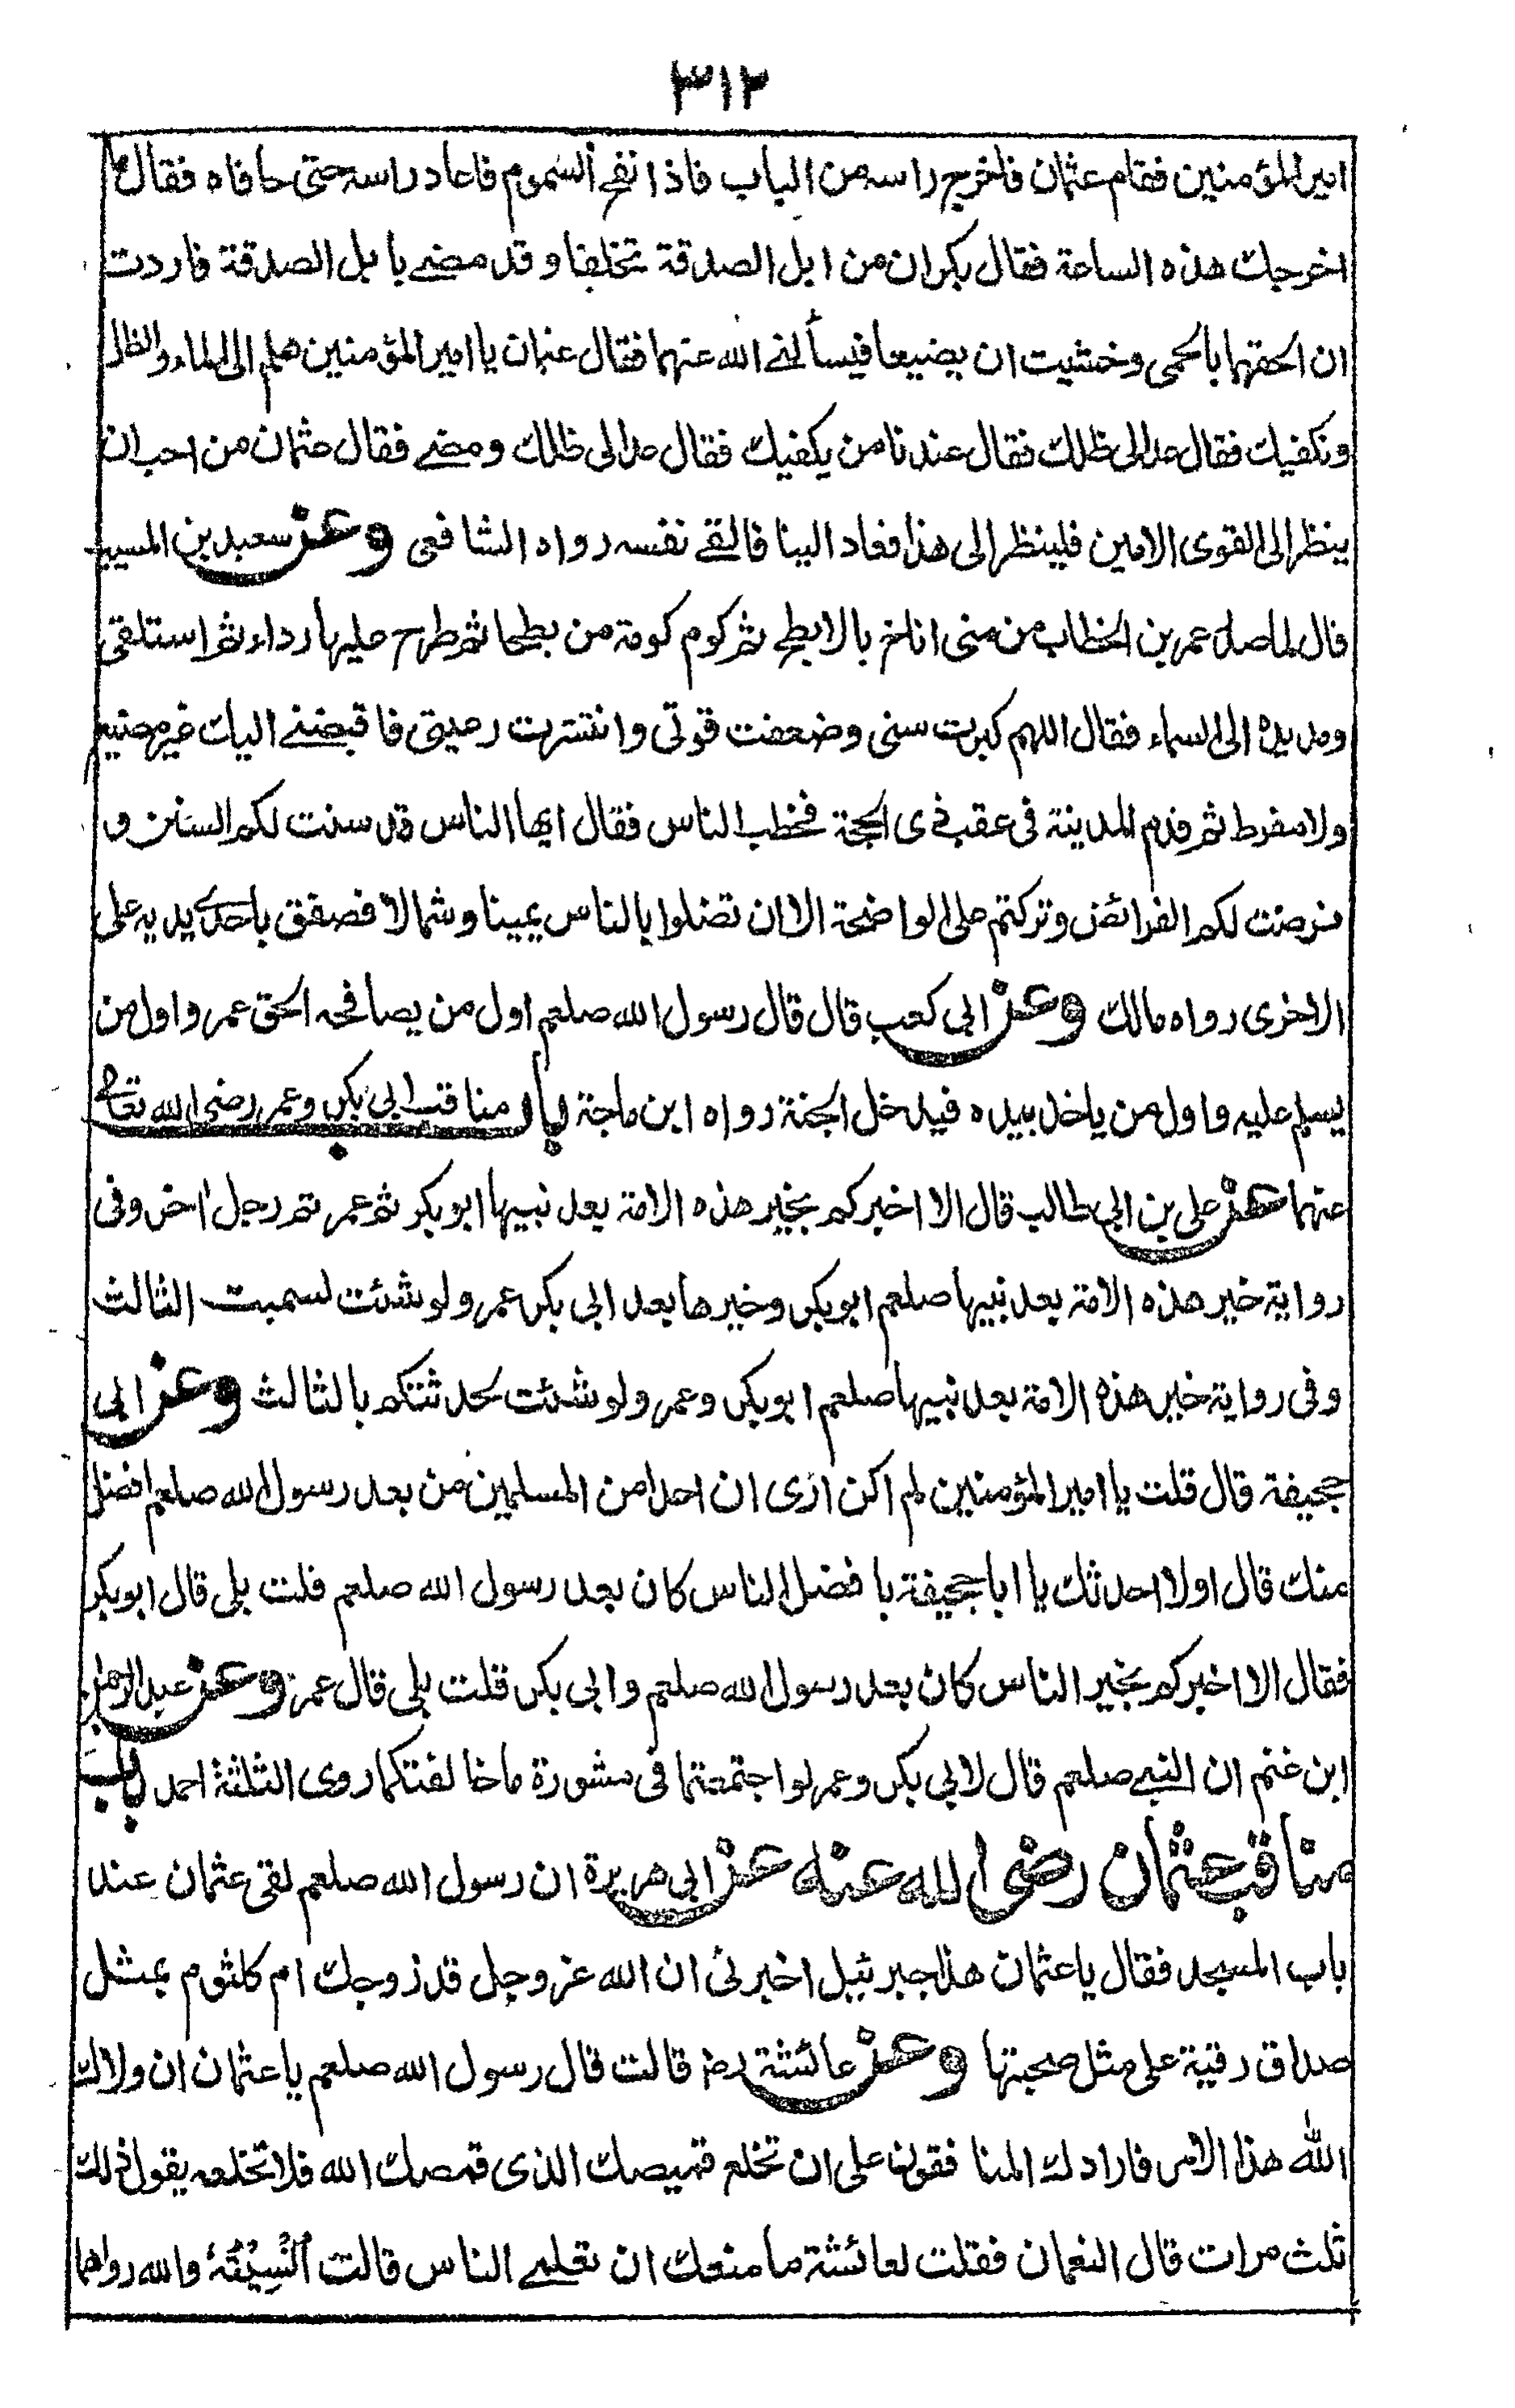 ٣١٢
امير المؤمنين فقام عثمان فاخرج راسه من الباب فاذا نفح السموم فاعاد راسه حتى حاذاه فقال ما
اخرجك هذه الساعة فقال بكران من ابل الصدقة تخلفا وقد مضى بابل الصدقة فاردت
ان الحقهما بالحمى وخشيت ان يضيعا فيسألنى الله عنهما فقال عثمان يا امير المؤمنين هلم الى الماء والظل
ونكفيك فقال عد الى ظلك فقال عندنا من يكفيك فقال عد الى ظلك ومضى فقال عثمان من احب ان
ينظر الى القوى الامين فلينظر الى هذا فعاد الينا فالقى نفسه رواه الشافعى وعن سعيد بن المسيب
قال لما صدر عمر بن الخطاب من منى اناخ بالابطح ثم كوم كومة من بطحا ثم طرح عليها رداء ثم استلقى
ومد يده الى السماء فقال اللهم كبرت سنى وضعفت قوتى وانتشرت رعيتى فاقبضنى اليك غير مضيع
ولا مفرط ثم قدم المدينة فى عقب ذى الحجة فخطب الناس فقال ايها الناس قد سنت لكم السنن و
فرضت لكم الفرائض وتركتم على الواضحة الا ان تضلوا بالناس يمينا وشمالا فصفق باحدى يديه على
الاخرى رواه مالك وعن ابى كعب قال قال رسول الله صلعم اول من يصافحه الحق عمر واول من
يسلم عليه واول من ياخذ بيده فيدخل الجنة رواه ابن ماجة باب مناقب ابى بكر وعمر رضى الله تعالى
عنهما عن على بن ابى طالب قال الا اخبركم بخير هذه الامة بعد نبيها ابو بكر ثم عمر ثم رجل اخر وفى
رواية خير هذه الامة بعد نبيها صلعم ابو بكر وخيرها بعد ابى بكر عمر ولو شئت لسميت الثالث
وفى رواية خير هذه الامة بعد نبيها صلعم ابو بكر وعمر ولو شئت لحدثتكم بالثالث وعن ابى
جحيفة قال قلت يا امير المؤمنين لم اكن ارى ان احدا من المسلمين من بعد رسول الله صلعم افضل
منك قال اولا احدثك يا ابا جحيفة بافضل الناس كان بعد رسول الله صلعم قلت بلى قال ابو بكر
فقال الا اخبركم بخير الناس كان بعد رسول الله صلعم وابى بكر قلت بلى قال عمر وعن عبد الرحمن
ابن غنم ان النبى صلعم قال لابى بكر وعمر لو اجتمعتما فى مشورة ما خالفتكما روى الثلثة احمد باب
مناقب عثمان رضى الله عنه عن ابى هريرة ان رسول الله صلعم لقى عثمان عند
باب المسجد فقال يا عثمان هذا جبرئيل اخبرنى ان الله عز وجل قد زوجك ام كلثوم بمثل
صداق رقية على مثل صحبتها وعن عائشة رض قالت قال رسول الله صلعم يا عثمان ان ولاك
الله هذا الامر فارادك المنافقون على ان تخلع قميصك الذى قمصك الله فلا تخلعه يقول ذلك
ثلث مرات قال النعمان فقلت لعائشة ما منعك ان تعلمى الناس قالت أُنْسِيْتُهُ والله رواهما